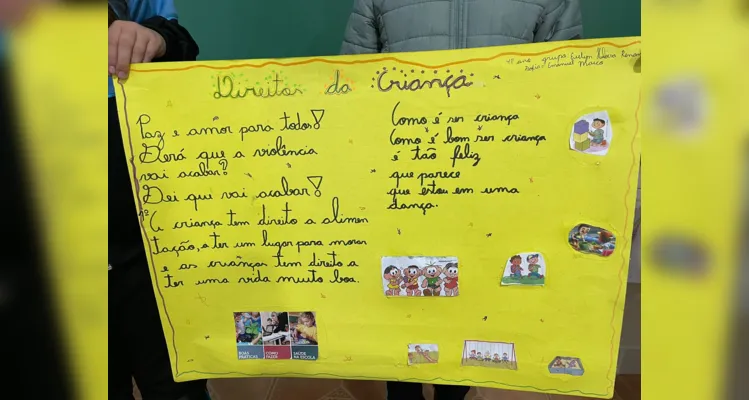 4º ano grupo: Evelyn
Sofia Emanuel
Direitos da Criança
Paz e amor para todos!
Será que a violência
vai acabar?
Sei qui vai acabar!
1º A criança tem direito a alimen
tação, a ter um lugar para morar
e as crianças tem direito a
ter uma vida muito boa.
Como é ser criança
Como é bom ser criança
é tão feliz
que parece
que estou em uma
dança.
BOAS PRÁTICAS
COMO FAZER
SAÚDE NA ESCOLA